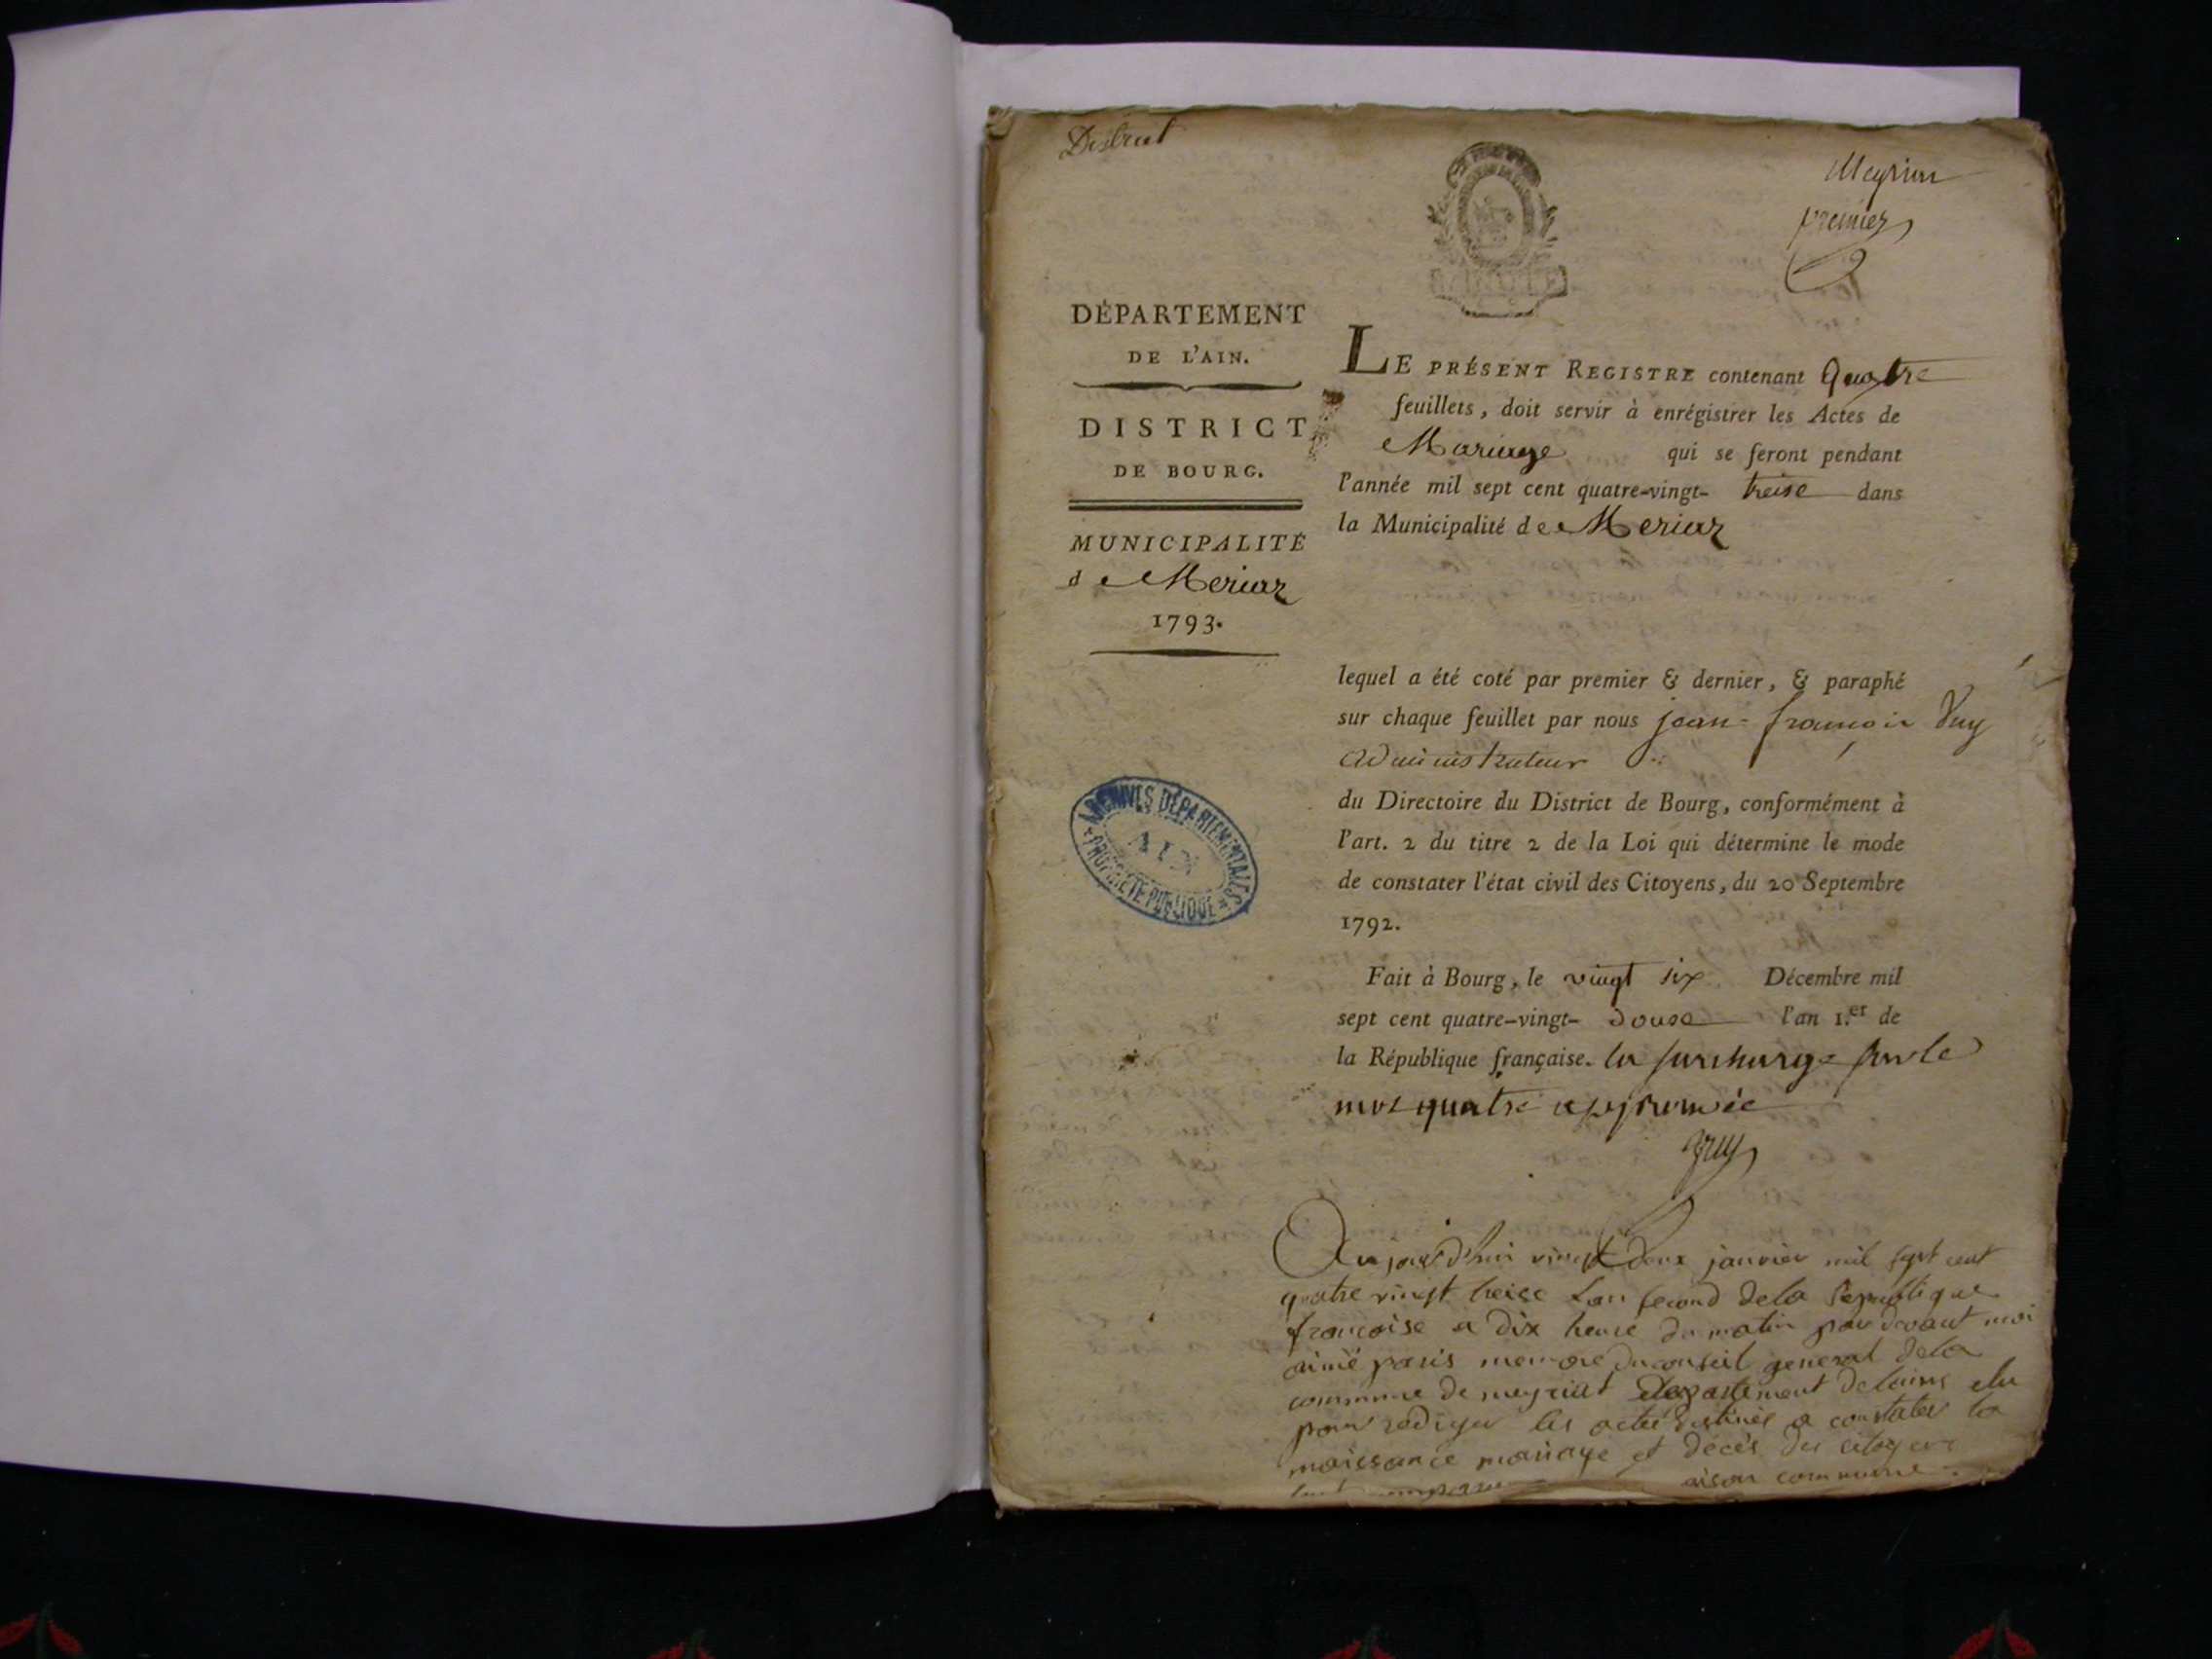 District
Meyriat
premier
DÉPARTEMENT
DE L'AIN.
DISTRICT
DE BOURG.
MUNICIPALITÉ
de Meriaz
1793.
LE PRÉSENT REGISTRE contenant Quatre
feuillets, doit servir à enrégistrer les Actes de
Mariage qui se feront pendant
l'année mil sept cent quatre-vingt- treise dans
la Municipalité de Meriaz
lequel a été coté par premier & dernier, & paraphé
sur chaque feuillet par nous jean-françois
administrateur
du Directoire du District de Bourg, conformément à
l'art. 2 du titre 2 de la Loi qui détermine le mode
de constater l'état civil des Citoyens, du 20 Septembre
1792.
Fait à Bourg, le vingt six Décembre mil
sept cent quatre-vingt- douse l'an 1.er de
la République française. la surcharge sur le
mot quatre approuvée
ARCHIVES DÉPARTEMENTALES
AIN
PROPRIÉTÉ PUBLIQUE
Aujourd'hui vingt deux janvier mil sept cent
quatre vingt treise l'an second dela Republique
françoise a dix heure du matin par devant moi
aimé paris membre du conseil general dela
commune de meyriat departement delains elu
pour rediger les actes destinés a constater la
naissance mariage et décès des citoyens
maison commune